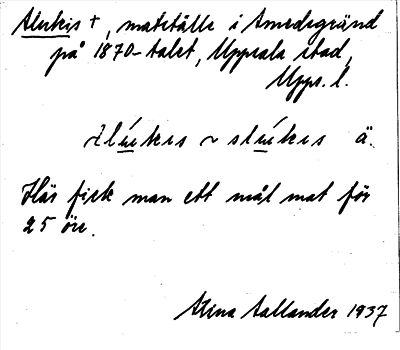 Slukis +, matställe i Smedsgränd
på 1870-talet, Uppsala stad,
Upps. l.
slúkıs ~ slúkıs ä.
Här fick man ett mål mat för
25 öre.
Stina Hallander 1937